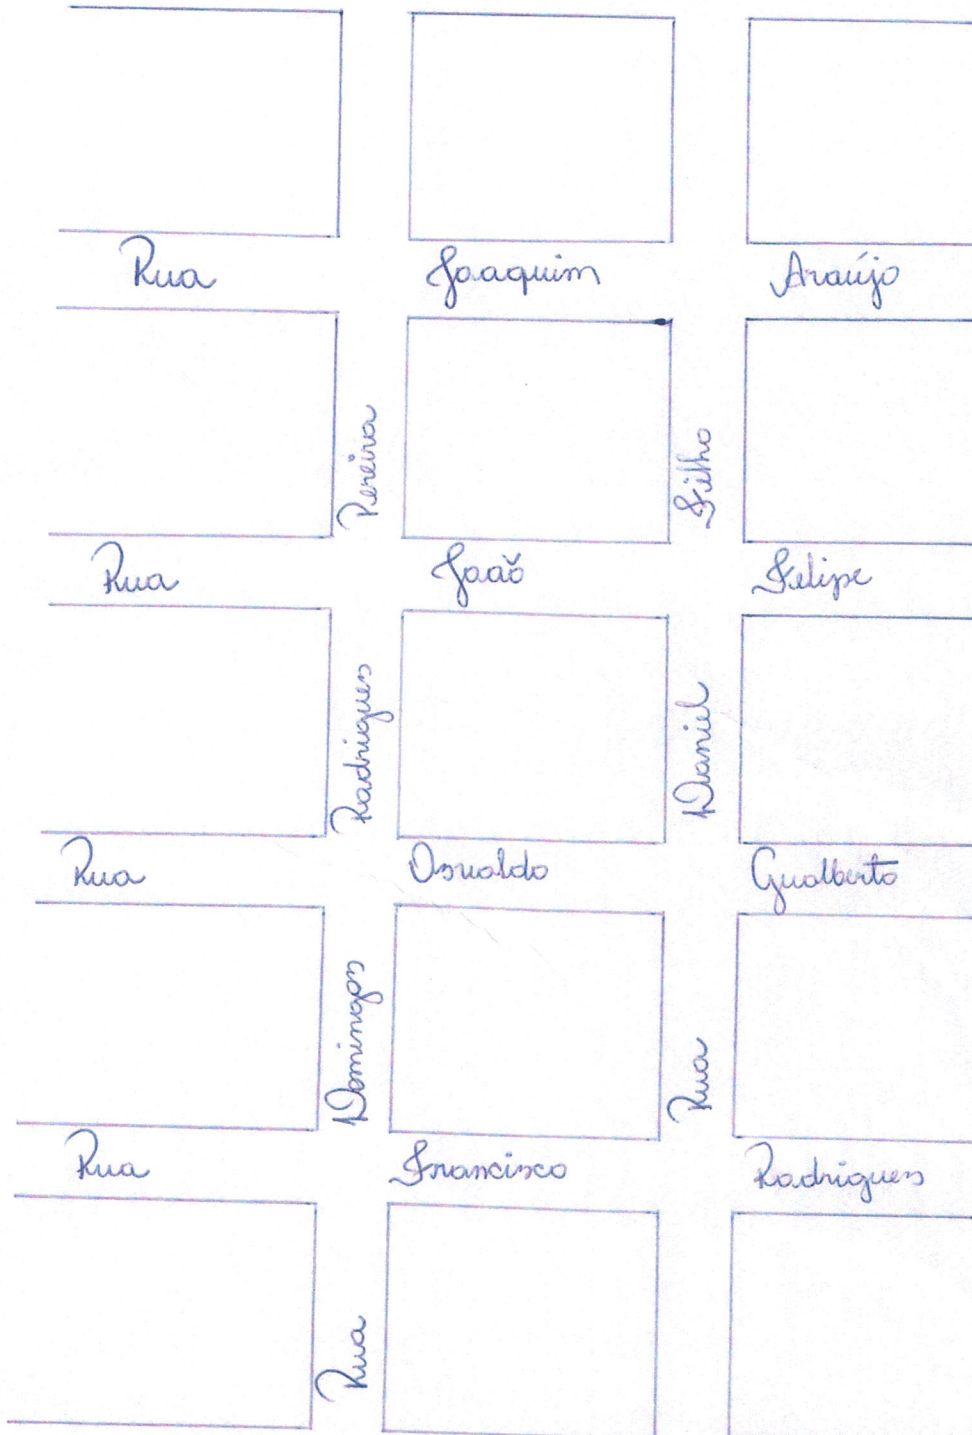 Rua Joaquim Araújo
Rua João Felipe
Rua Osvaldo Gualberto
Rua Francisco Rodrigues
Rua Domingos Rodrigues Pereira
Rua Daniel Filho